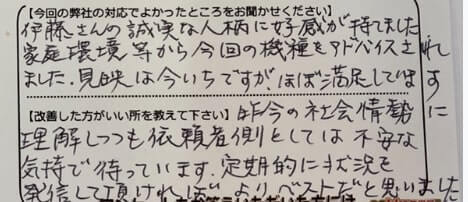 【今回の弊社の対応でよかったところをお聞かせください】
伊藤さんの誠実な人柄に好感が持てました
家庭環境等から今回の機種をアドバイスされ
ました.見映は今いちですが、ほぼ満足しています
【改善した方がいい所を教えて下さい】昨今の社会情勢に
理解しつつも依頼者側としては不安な
気持で待っています.定期的に状況を
発信して頂ければよりベストだと思いました